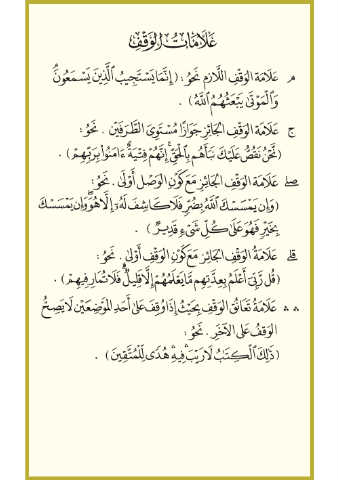 عَلَامَاتُ الوَقْفِ
مـ عَلَامَة الوَقْفِ اللَّازِمِ نَحْوُ : ( إِنَّمَا يَسْتَجِيبُ ٱلَّذِينَ يَسْمَعُونَۘ
وَٱلْمَوْتَىٰ يَبْعَثُهُمُ ٱللَّهُ ) .
ج عَلَامَة الوَقْفِ الجَائِزِ جَوَازًا مُسْتَوِيَ الطَّرَفَيْن . نَحْوُ :
( نَّحْنُ نَقُصُّ عَلَيْكَ نَبَأَهُم بِٱلْحَقِّۚ إِنَّهُمْ فِتْيَةٌ ءَامَنُواْ بِرَبِّهِمْ ) .
صلے عَلَامَة الوَقْفِ الجَائِزِ مَعَ كَوْنِ الوَصْلِ أَوْلَى . نَحْوُ :
( وَإِن يَمْسَسْكَ ٱللَّهُ بِضُرٍّ فَلَا كَاشِفَ لَهُۥٓ إِلَّا هُوَۖ وَإِن يَمْسَسْكَ
بِخَيْرٍ فَهُوَ عَلَىٰ كُلِّ شَىْءٍ قَدِيرٌ ) .
قلے عَلَامَةُ الوَقْفِ الجَائِزِ مَعَ كَوْنِ الوَقْفِ أَوْلَى . نَحْوُ :
( قُل رَّبِّىٓ أَعْلَمُ بِعِدَّتِهِم مَّا يَعْلَمُهُمْ إِلَّا قَلِيلٌۗ فَلَا تُمَارِ فِيهِمْ ) .
ۛ ۛ عَلَامَةُ تَعَانُقِ الوَقْفِ بِحَيْثُ إِذَا وُقِفَ عَلَى أَحَدِ المَوْضِعَيْنِ لَا يَصِحُّ
الوَقْفُ عَلَى الآخَرِ . نَحْوُ :
( ذَٰلِكَ ٱلْكِتَٰبُ لَا رَيْبَۛ فِيهِۛ هُدًى لِّلْمُتَّقِينَ ) .